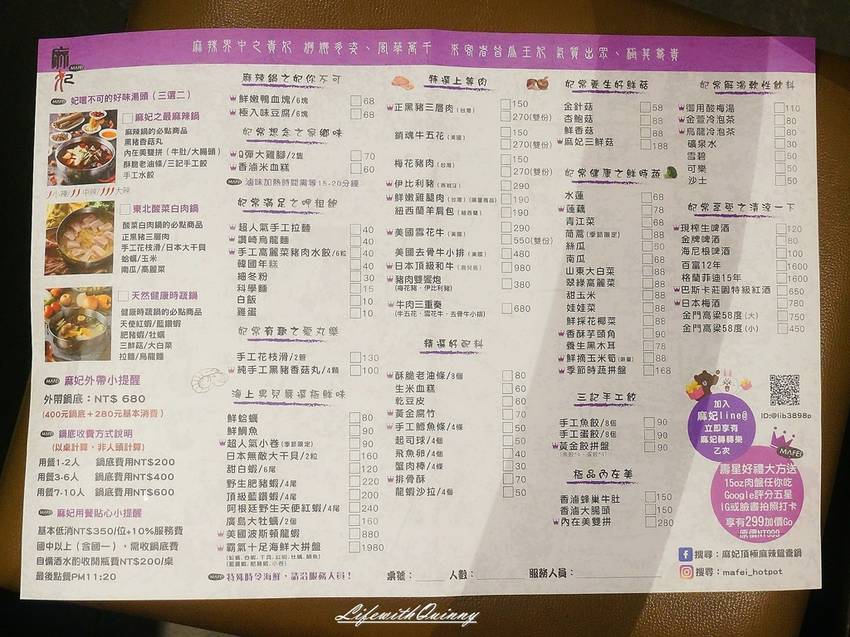 麻辣界中之貴妃 婀娜多姿、風華萬千 來客者皆為王妃 氣質出眾、極其尊貴
麻妃
MAFEI
妃嚐不可的好味湯頭（三選二）
麻妃之最麻辣鍋
麻辣鍋的必點商品
黑豬香菇丸
內在美雙拼（牛肚/大腸頭）
酥脆老油條/三記手工餃
手工水餃
小辣/中辣/大辣
東北酸菜白肉鍋
酸菜白肉鍋的必點商品
正黑豬三層肉
手工花枝滑/日本大干貝
蛤蠣/玉米
南瓜/高麗菜
天然健康時蔬鍋
健康時蔬鍋的必點商品
天使紅蝦/藍鑽蝦
肥豬蝦/牡蠣
三鮮菇/大白菜
拉麵/烏龍麵
麻妃外帶小提醒
外帶鍋底：NT$ 680
(400元鍋底＋280元基本消費)
鍋底收費方式說明
(以桌計算，非人頭計算)
用餐1-2人 鍋底費用NT$200
用餐3-6人 鍋底費用NT$400
用餐7-10人 鍋底費用NT$600
麻妃用餐貼心小提醒
基本低消NT$350/位+10%服務費
國中以上（含國一），需收鍋底費
自備酒水酌收開瓶費NT$200/桌
最後點餐PM11:20
麻辣鍋之妃你不可
鮮嫩鴨血塊/6塊 68
極入味豆腐/6塊 68
妃常想念之家鄉味
Q彈大雞腳/2隻 70
香滷米血糕 60
滷味加熱時間需等15-20分鐘
妃常滿足之呷粗飽
超人氣手工拉麵 40
讚崎烏龍麵 40
手工高麗菜豬肉水餃/6粒 40
韓國年糕 40
細冬粉 30
科學麵 15
白飯 10
雞蛋 10
妃常有趣之憂丸樂
手工花枝滑/2管 130
純手工黑豬香菇丸/4顆 100
海上男兒嚴選極鮮味
鮮蛤蠣 80
鮮鯛魚 90
超人氣小卷(季節限定) 90
日本無敵大干貝/2粒 160
甜白蝦/6尾 120
野生肥豬蝦/4尾 220
頂級藍鑽蝦/4尾 200
阿根廷野生天使紅蝦/4尾 240
廣島大牡蠣/2個 160
美國波斯頓龍蝦 880
霸氣十足海鮮大拼盤 1980
特殊時令海鮮，請洽服務人員！
特選上等肉
正黑豬三層肉(台灣) 150
270(雙份)
銷魂牛五花(美國) 150
270(雙份)
梅花豬肉(台灣) 150
270(雙份)
伊比利豬(西班牙) 290
鮮嫩雞腿肉(台灣) 190
紐西蘭羊肩包(紐西蘭) 190
美國霜花牛(美國) 290
550(雙份)
美國去骨牛小排(美國) 480
日本頂級和牛(鹿兒島) 980
豬肉雙饗炮 380
(梅花豬、伊比利豬)
牛肉三重奏 680
(牛五花、霜花牛、去骨牛小排)
精選好配料
酥脆老油條/8個 80
生米血糕 60
乾豆皮 60
黃金腐竹 70
手工鱈魚條/4條 50
起司球/4個 50
飛魚卵/4個 40
蟹肉棒/4條 30
排骨酥 70
龍蝦沙拉/4個 50
桌號： 人數： 服務人員：
妃常養生好鮮菇
金針菇 58
杏鮑菇 68
鮮香菇 88
麻妃三鮮菇 188
妃常健康之鮮時蔬
水蓮 68
蓮藕 78
青江菜 68
茼蒿(季節限定) 88
絲瓜 50
南瓜 68
山東大白菜 88
翠綠高麗菜 88
甜玉米 58
娃娃菜 88
鮮採花椰菜 88
香酥芋頭角 90
養生黑木耳 78
鮮摘玉米筍 88
季節時蔬拼盤 168
三記手工餃
手工魚餃/8個 90
手工蛋餃/8個 90
黃金餃拼盤 90
極品內在美
香滷蜂巢牛肚 150
香滷大腸頭 150
內在美雙拼 280
妃常解渴軟性飲料
御用酸梅湯 110
金萱冷泡茶 80
烏龍冷泡茶 80
礦泉水 30
雪碧 50
可樂 50
沙士 50
妃常至要之清涼一下
現榨生啤酒 120
金牌啤酒 80
海尼根啤酒 100
百富12年 1600
格蘭菲迪15年 1600
巴斯卡莊園特級紅酒 650
日本梅酒 780
金門高梁58度(大) 750
金門高梁58度(小) 450
加入
麻妃line@
立即享有
麻妃轉轉樂
乙次
ID:@lib3898p
MAFEI
壽星好禮大方送
15oz肉盤任你吃
Google評分五星
IG或臉書拍照打卡
享有299加價Go
原價NT999
搜尋：麻妃頂極麻辣鴛鴦鍋
搜尋：mafei_hotpot
LifewithQuinny